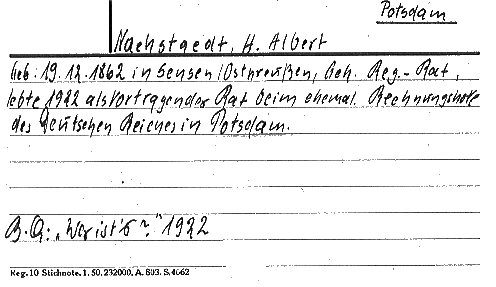 Potsdam
Nachstaedt, H. Albert
Geb. 19.12.1862 in Sensen/Ostpreußen, Geh. Reg.-Rat,
lebte 1922 als Vortragender Rat beim ehemal. Rechnungshofe
des Deutschen Reiches in Potsdam.
B.Q: „Wer ist's?" 1922
Reg. 10 Stichnote. 1. 50. 232000. A. 803. S. 4662